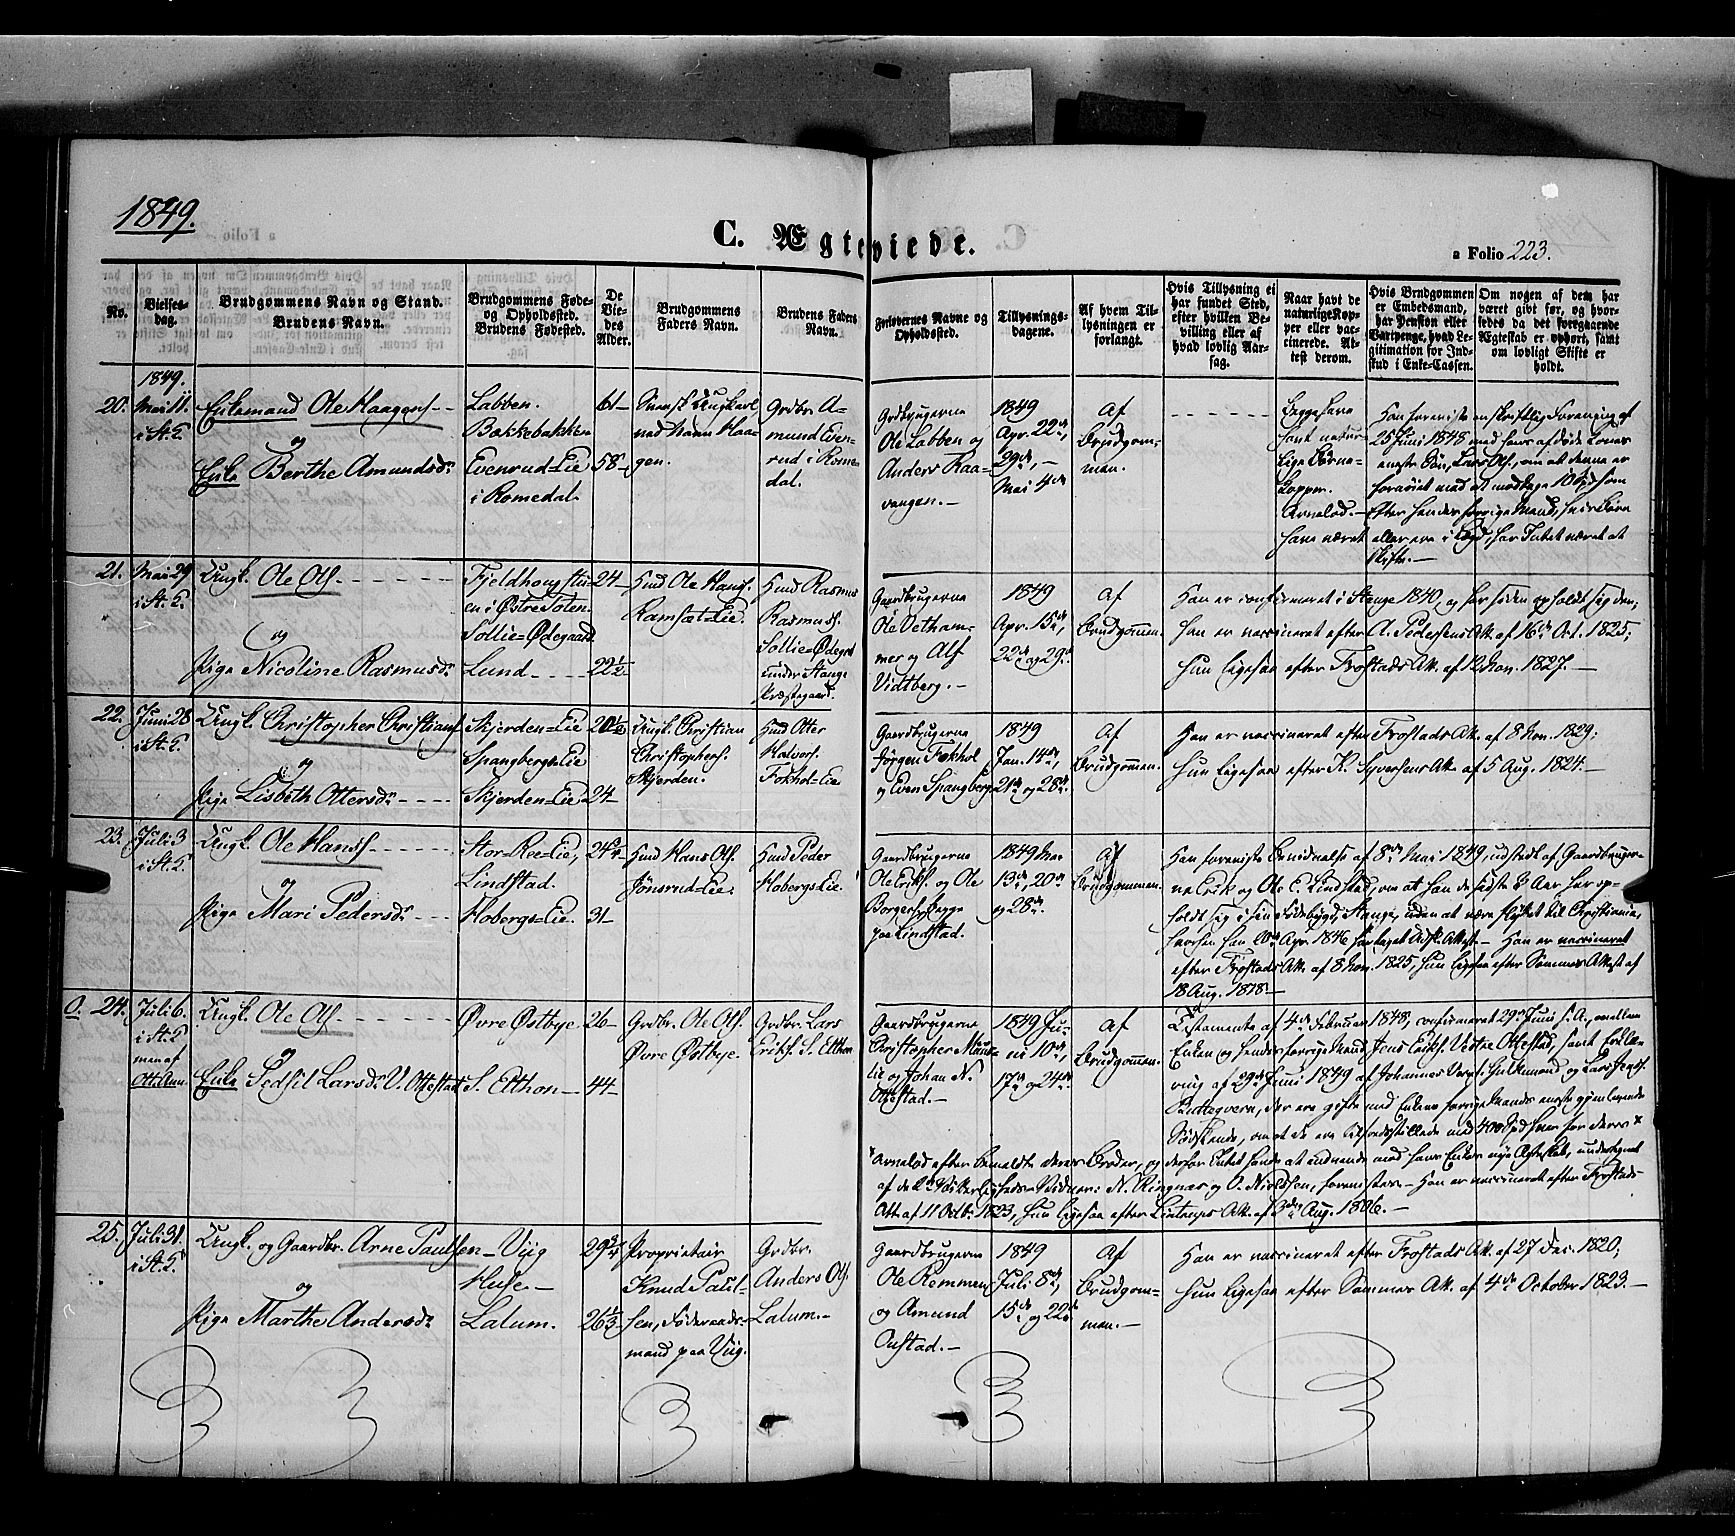 1849.
C. Ægteviede.
a Folio 223.
No.
Vielses-
dag.
Brudgommens Navn og Stand.
Brudens Navn.
Brudgommens Føde-
og Opholdssted.
Brudens Fødested.
De
Vie-
des
Alder.
Brudgommens
Faders Navn.
Brudens Faders
Navn.
Forlovernes Navne og
Opholdssted.
Tillysnings-
dagene.
Af hvem Til-
lysningen er
forlangt.
Hvis Tillysning ei
har fundet Sted,
efter hvilken Be-
villing eller af
hvad lovlig Aar-
sag.
Naar havt de
naturlige Kop-
per eller vac-
cinerede. At-
test derom.
Hvis Brudgommen
er Embedsmand,
har Pension eller
Vartpenge, hvad Le-
gitimation for Ind-
skud i Enke-Cassen.
Om nogen af dem har
været gift før, og hvor-
ledes da det foregaaende
Ægteskab er ophørt, samt
om lovligt Skifte er
holdt.
1849.
20.
Mai 11.
i St. K
Enkemand Ole Haagens.
og
Enke Berthe Amundsdr
Labben.
Bækkebakken
Evenrud-Eie
i Romedal.
61
58
Svensk Ungkarl
ved Navn Haa-
gen.
Grdbr. A-
mund Even-
rud i Rome-
dal.
Grdbrugerne
Ole Labben og
Anders Raa-
vangen.
1849
Apr. 22de,
29de,
Mai 4de
Af
Brudgom-
men.
Begge have
havt natur-
lige Børne-
kopper.
Arvelod.
Han foreviste en skriftlig Forening af
25 Juni 1848 med hans afdøde Kones
eneste Søn, Lars Ols., om at denne er
fornøiet med at modtage 10 Spd som
Efter hendes forrige Mand, hvis Børn
have været eller ere i Lægd, har Intet været at
skifte.
21.
Mai 29
i St. K.
Ungk. Ole Ols.
og
Pige Nicoline Rasmusdr
Fjeldhougstu-
en i Østre Toten.
Sollie-Ødegaard
Lund
24
22½
Husmd Ole Hans.
Ramsæt-Eie.
Husmd Rasmus
Rasmuss.
Sollie-Ødegrd
under Stange
Præstegaard.
Gaardbrugerne
Ole Vetham-
mer og Alf
Vidtberg.
1849
Apr. 15de,
22de og 29de
Af
Brudgommen.
Han er confirmeret i Stange 1840 og har siden opholdt sig der;
Han er vaccineret efter A. Pedersens Att. af 16de Oct. 1825;
Hun ligesaa efter Frostads Att. af 12 Nov. 1827.
22.
Juni 28
i St. K.
Ungk. Christopher Christians.
og
Pige Lisbeth Ottersdr
Skjerden-Eie
Spangbergs-Eie
Skjerden-Eie
20½
24
Ungk. Christian
Christophers.
Skjerden.
Husmd Otter
Halvors.
Fokhol-Eie
Gaardbrugerne
Jørgen Fokhol
og Even Spangberg.
1849
Jan. 14de,
21de og 28de.
Af
Brudgommen.
Han er vaccineret efter Frostads Att. af 8 Nov. 1829;
Hun ligesaa efter K. Syversens Att. af 5 Aug. 1824.
23.
Juli 3
i St. K.
Ungk. Ole Hans.
og
Pige Mari Pedersdr
Stor-Ree-Eie,
Lindstad.
Hobergs-Eie.
24¾
31
Husmd Hans Ols.
Jønsrud-Eie.
Husmd Peder
Hobergs-Eie.
Gaardbrugerne
Ole Eriks. og Ole
Borgers. begge
paa Lindstad.
1849 Mai
13de, 20de
og 28de.
Af
Brudgommen.
Han foreviste Bevidnelse af 8de Mai 1849, udstedt af Gaardbruger-
ne Erik og Ole E. Lindstad, om at han de sidste 8 Aar har op-
holdt sig i sin Fødebygd, Stange, uden at være flyttet til Christiania,
hvorhen han 20de Apr. 1846 har taget Udfl. Attest. Han er vaccineret
efter Frostads Att. af 8 Nov. 1825, hun ligesaa efter Sommers Attest af
18 Aug. 1818
O. 24.
Juli 6.
i St. K
men af
Ott. Ann.
Ungk. Ole Ols.
og
Enke Pedsil Larsdr V. Ottestad
Øvre Østbye.
S. Elthon
26
44
Grdbr. Ole Ols.
Øvre Østbye.
Grdbr. Lars
Eriks. S. Elthon
Gaardbrugerne
Christopher Maus-
lie og Johan N.
Ottestad.
1849 Ju-
ni 10de,
17de og 24de
Af
Brudgommen.
Testamente af 4de Februar 1848, confirmeret 29de Juni s. A., mellem
Enken og hendes forrige Mand, Jens Eriks. Vestre Ottestad, samt Erklæ-
ring af 29de Juni 1849 af Johannes Gulkmoend og Lars Jens.
Buttegvern, der ere gifte med Enkens forrige Mands eneste gjenlevende
Sødskende, om at de ere tilfredsstillede med 400 Spd hver for deres *
* Arvelod efter bemeldte deres Broder, og derfor Intet havde at indvende mod hans Enkes nye Ægteskab, undertegnet
af de 2de Vitterligheds-Vidner: N. Ringnæs og O. Nieldsen, forevistes. Han er vaccineret efter Frostads
Att. af 11 Octbr 1823, Hun ligesaa efter Lintrups Att. af 3die Aug. 1806.
25.
Juli 31.
i St. K.
Ungk. og Gaardbr. Arne Paulsen
og
Pige Marthe Andersdr
Viig
Huse
Lalum.
29¾
26⅓
Proprietair
Knud Paul-
sen, Føderaads-
mand paa Viig.
Grdbr.
Anders Ols.
Lalum.
Gaardbrugerne
Ole Remmen
og Amund
Oustad.
1849
Juli 8de,
15de og 22de
Af
Brudgom-
men.
Han er vaccineret efter Frostads Att. af 27 Dec. 1820;
Hun ligesaa efter Sommers Att. af 4de October 1823.